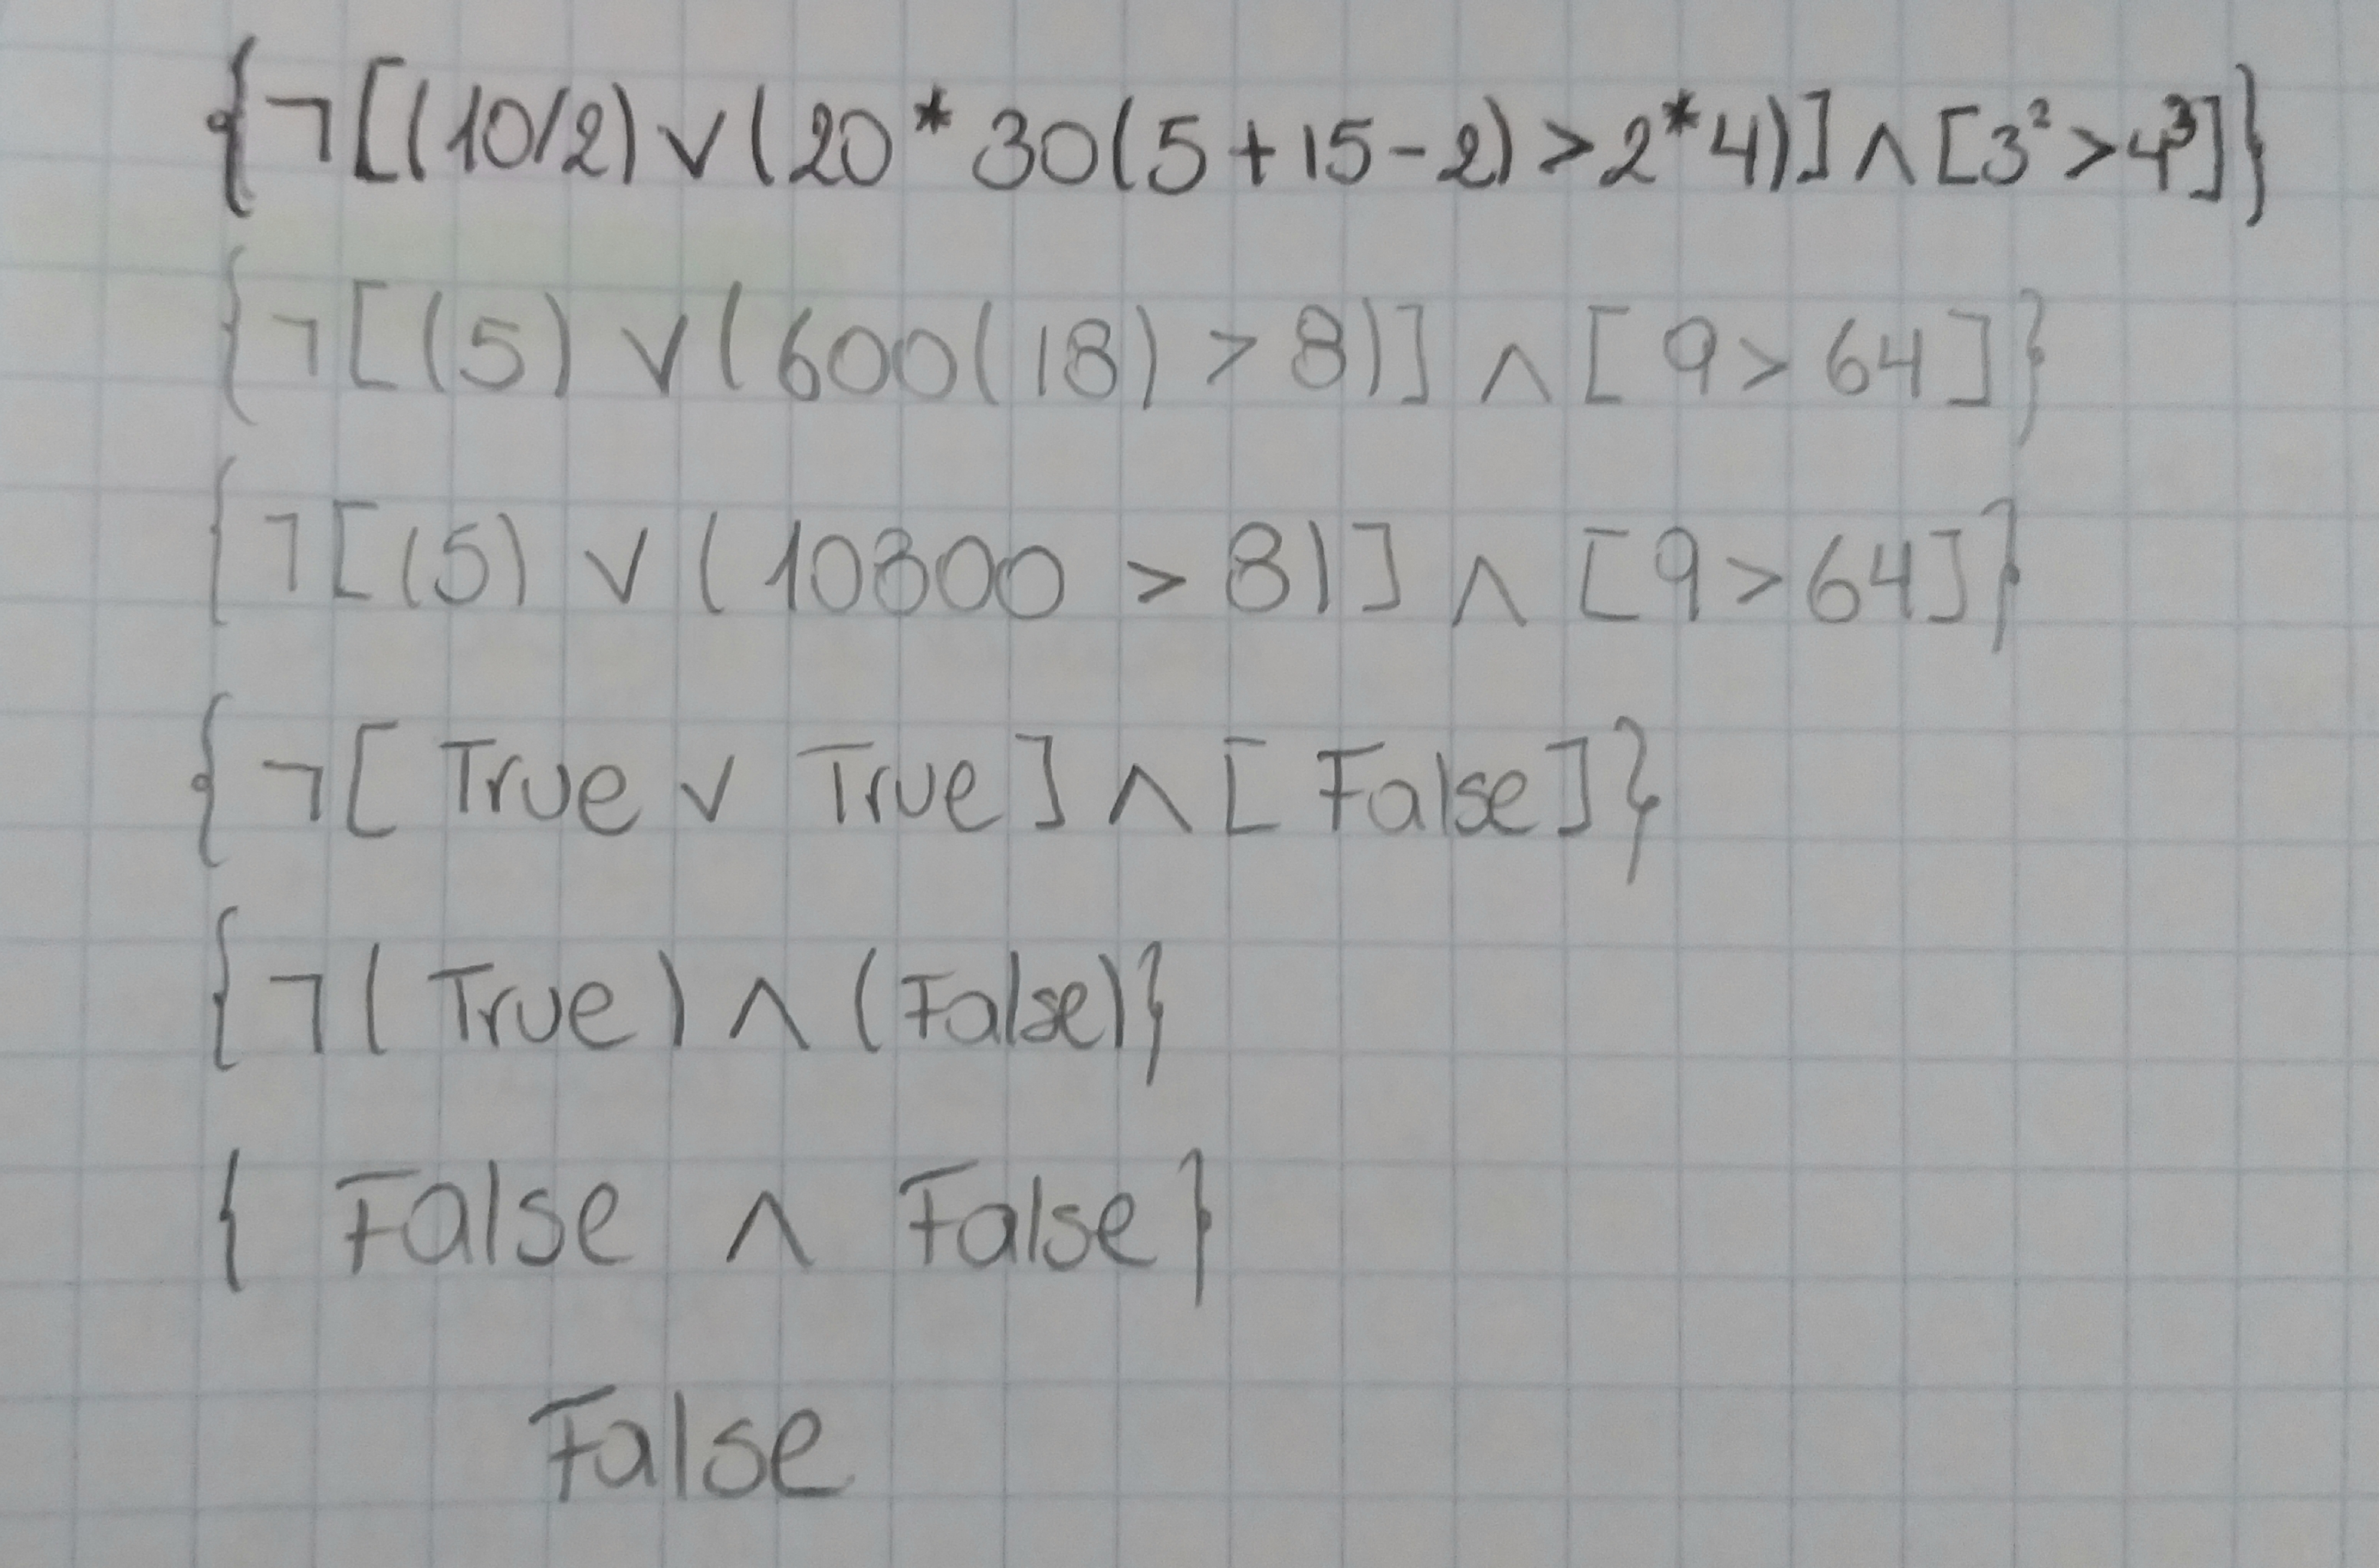 {¬[(10/2)∨(20*30(5+15-2)>2*4)]∧[3²>4³]}
{¬[(5)∨(600(18)>8)]∧[9>64]}
{¬[(5)∨(10800>8)]∧[9>64]}
{¬[True∨True]∧[False]}
{¬(True)∧(False)}
{False∧False}
False